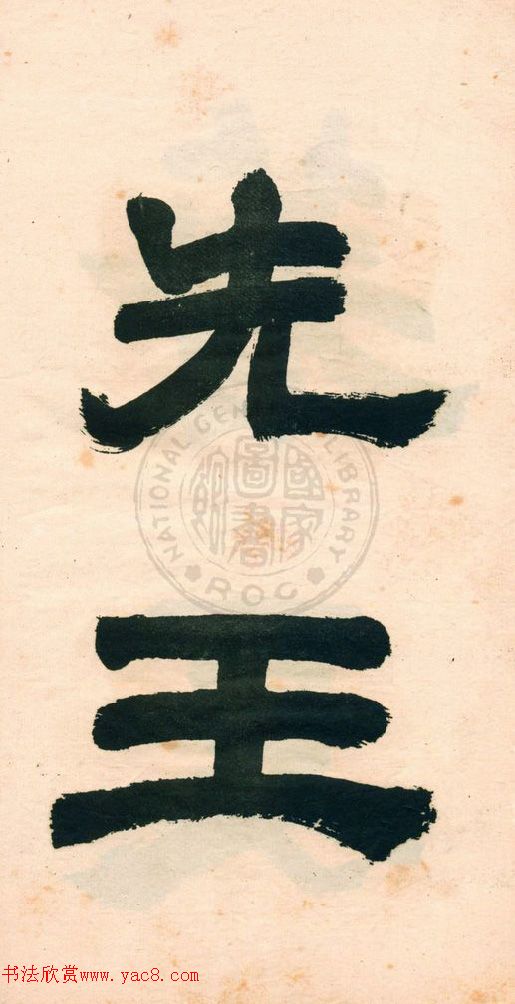 先
王
NATIONAL CENTRAL LIBRARY
國家圖書館
R.O.C
书法欣赏www.yac8.com